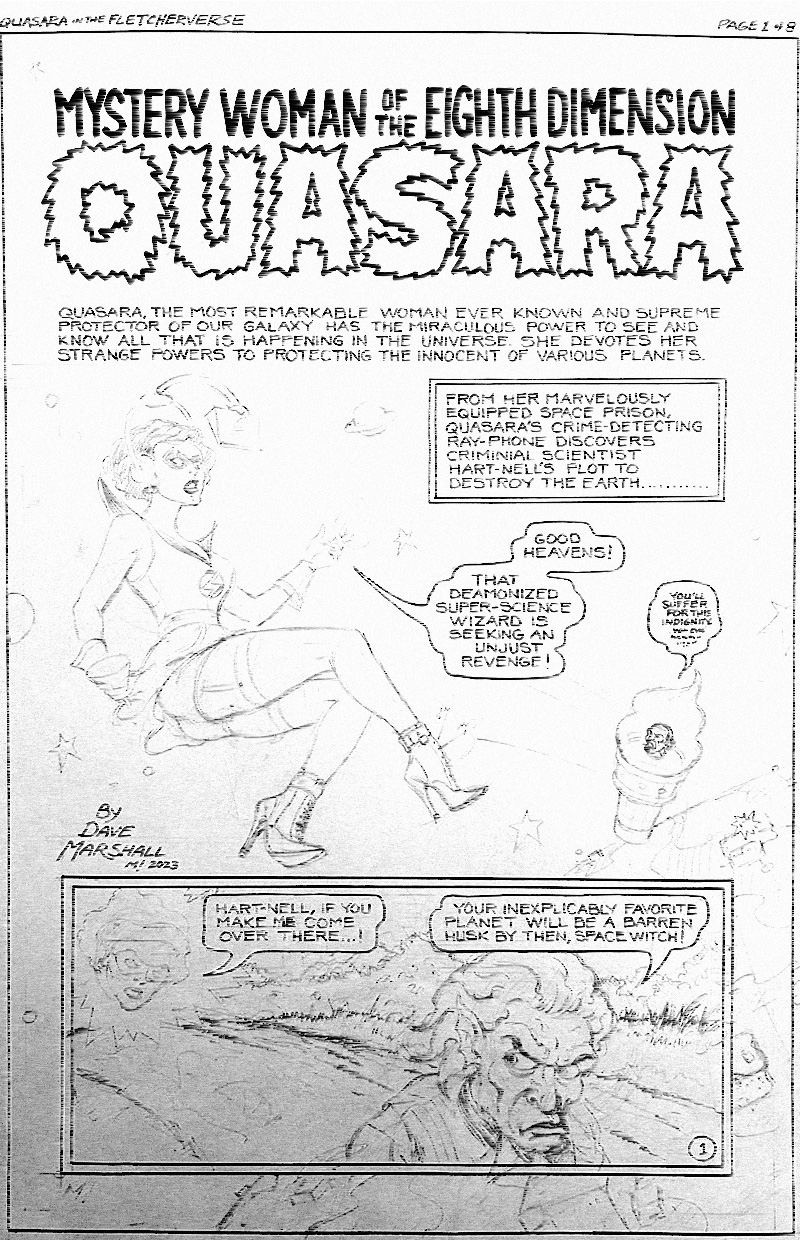 QUASARA IN THE FLETCHERVERSE
PAGE 1 of 8
MYSTERY WOMAN OF THE EIGHTH DIMENSION
QUASARA
QUASARA, THE MOST REMARKABLE WOMAN EVER KNOWN AND SUPREME
PROTECTOR OF OUR GALAXY HAS THE MIRACULOUS POWER TO SEE AND
KNOW ALL THAT IS HAPPENING IN THE UNIVERSE. SHE DEVOTES HER
STRANGE POWERS TO PROTECTING THE INNOCENT OF VARIOUS PLANETS.
FROM HER MARVELOUSLY
EQUIPPED SPACE PRISON,
QUASARA'S CRIME-DETECTING
RAY-PHONE DISCOVERS
CRIMINIAL SCIENTIST
HART-NELL'S PLOT TO
DESTROY THE EARTH..........
GOOD
HEAVENS!
THAT
DEAMONIZED
SUPER-SCIENCE
WIZARD IS
SEEKING AN
UNJUST
REVENGE!
YOU'LL
SUFFER
FOR THIS
INDIGNITY
BY
DAVE
MARSHALL
M! 2023
HART-NELL, IF YOU
MAKE ME COME
OVER THERE...!
YOUR INEXPLICABLY FAVORITE
PLANET WILL BE A BARREN
HUSK BY THEN, SPACEWITCH!
1
M!